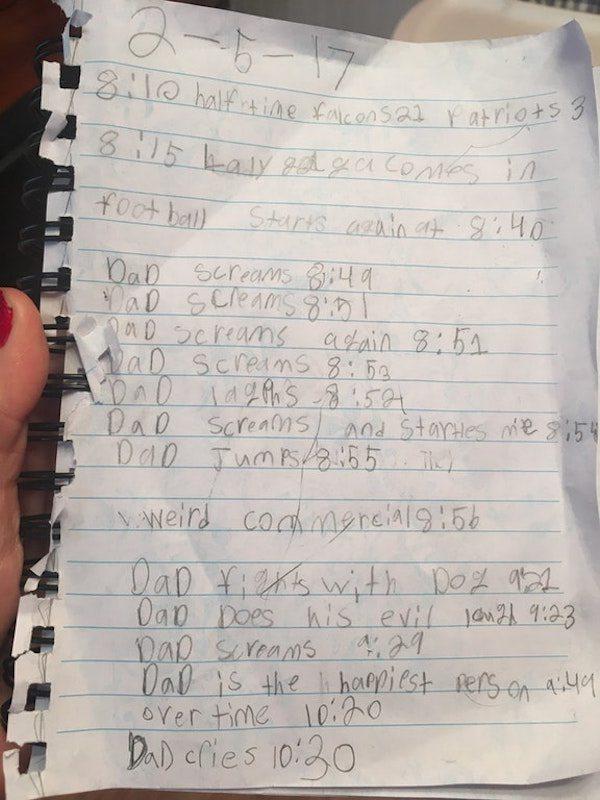 2-5-17
8:10 halftime falcons 21 Patriots 3
8:15 Lady gaga comes in
football starts again at 8:40
DaD screams 8:49
DaD screams 8:51
DaD screams again 8:51
DaD screams 8:53
DaD 8:54
DaD screams and startles me 8:54
DaD Jumps 8:55
weird commercial 8:56
DaD fights with Dog 9:21
DaD Does his evil laugh 9:23
DaD screams 9:29
DaD is the happiest person 9:49
over time 10:20
DaD cries 10:30